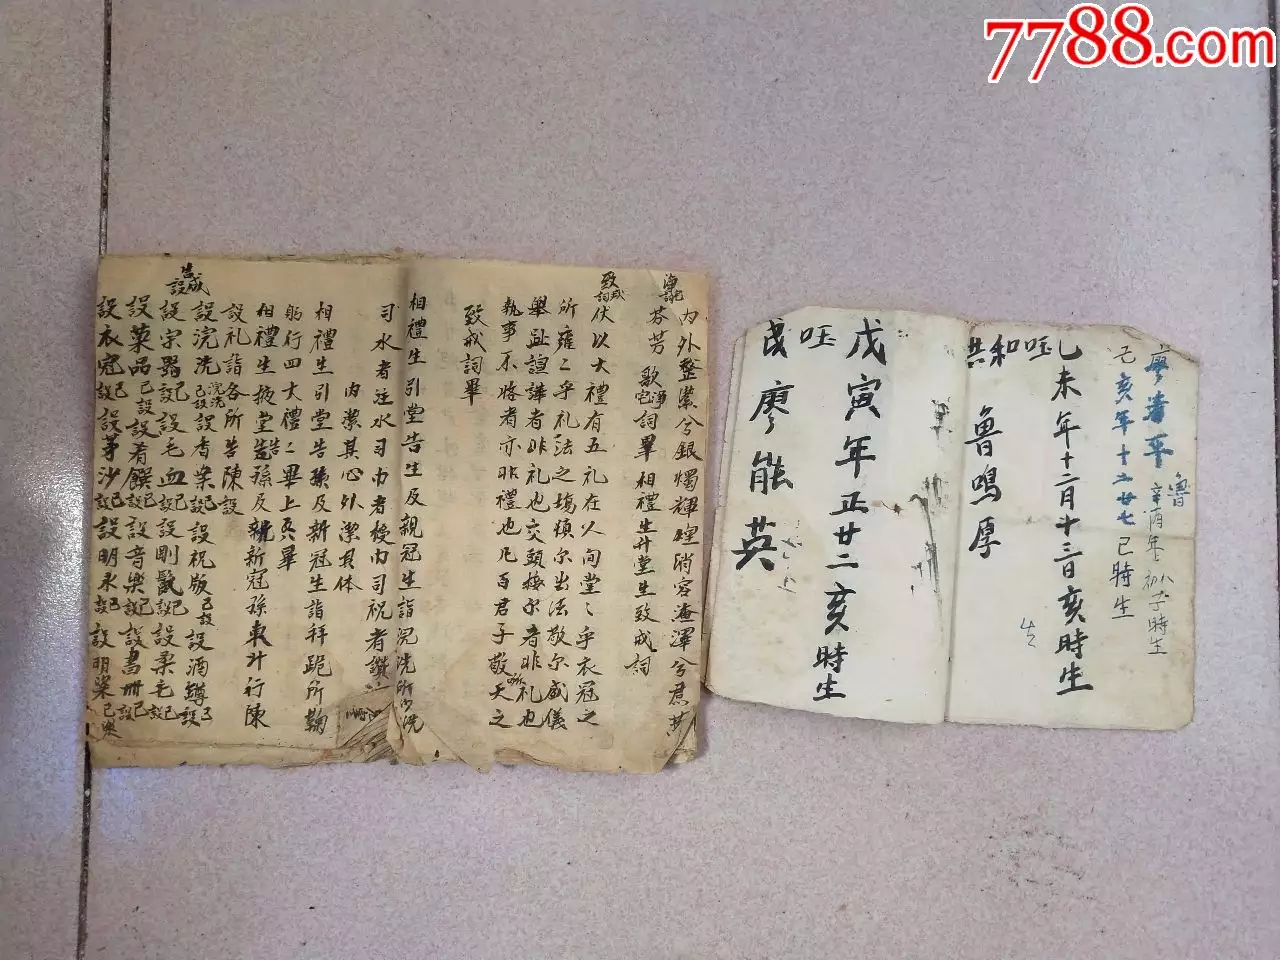 7788.com
内外整肅兮銀燭輝煌消容海澤兮君燕
芬芳 歌 詞畢相禮生升堂生致戒詞
致戒詞
伏以大禮有五礼在人间堂〻乎衣冠之
所雍〻乎礼法之塲慎尔出法敬尔威儀
舉趾諠譁者非礼也交頭接尔者非礼也
執事不恪者亦非禮也凡百君子敬天之
致戒詞畢
相禮生引堂告生及親冠生詣浣洗所
司水者注水司巾者授巾司祝者讚
内潔其心外潔其体
相禮生引堂告孫及新冠生詣拜跪所鞠
躬行四大禮〻畢上
相禮生掖堂告孫及新冠孫
設礼詣各所告陳設
告成設
設浣洗 浣洗已設 設香案 設祝版已設 設酒罇已設
設宗器 設毛血 設剛鬣 設柔毛
設菓品已設 設肴饌 設音樂 設書冊
設衣冠 設茅沙 設明水 設明粢
廖清平
己亥年十二廿七巳時生
魯
辛酉年 初 子時生
乙未年十二月十三日亥時生
共和
魯鳴厚
生
戊寅年正廿二亥時生
廖能英